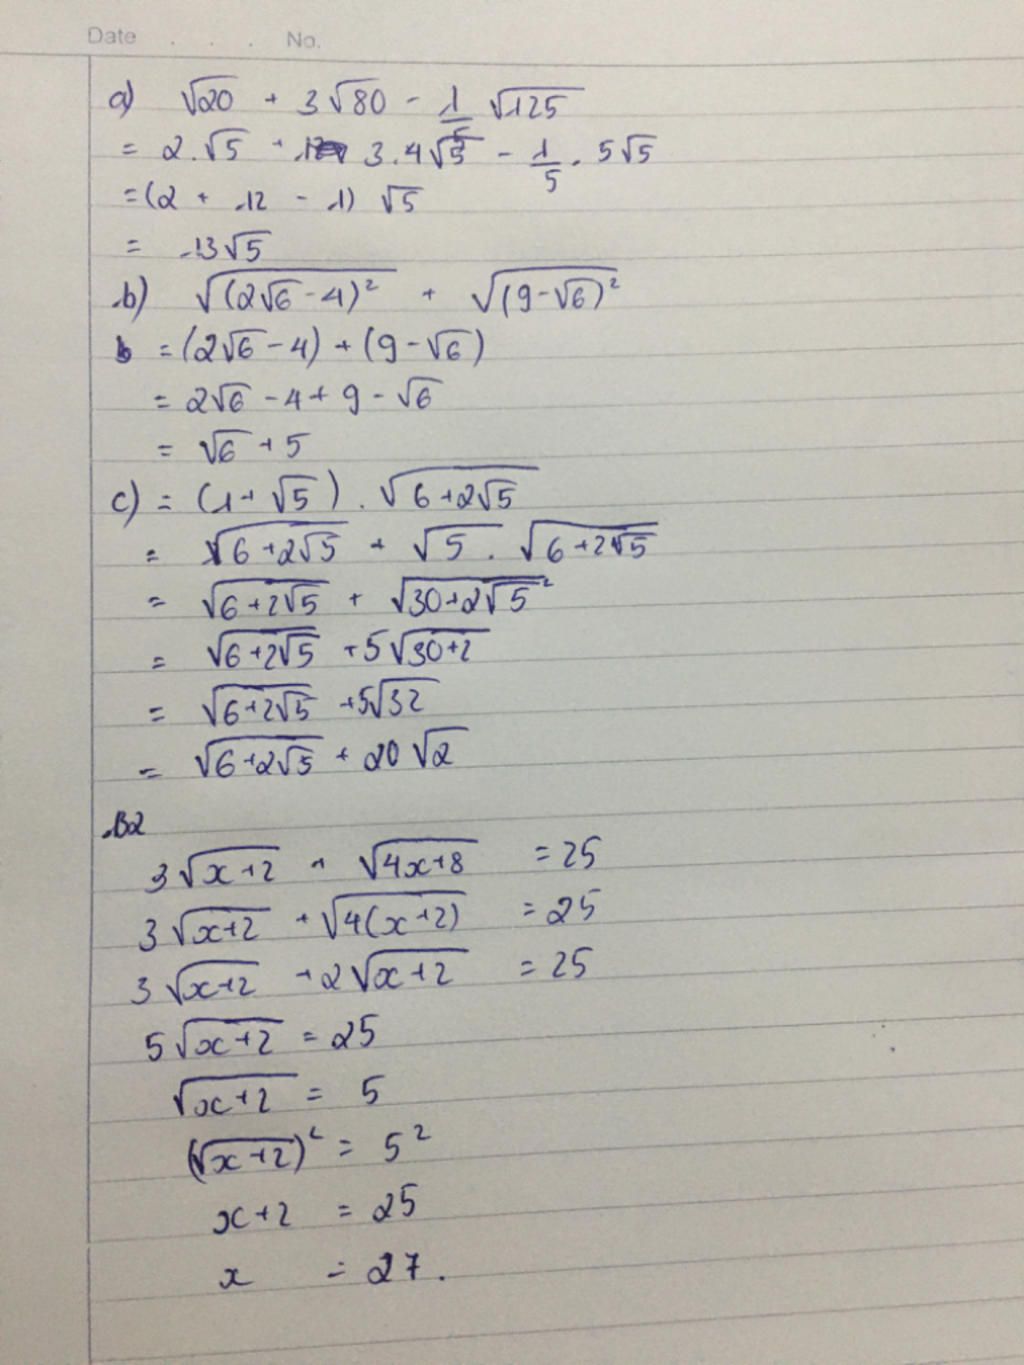 Date . . . No.
a) √20 + 3√80 - 1/5 √125
= 2.√5 + 3.4√5 - 1/5 . 5√5
= (2 + 12 - 1) √5
= 13√5
b) √(2√6 - 4)² + √(9-√6)²
= (2√6 - 4) + (9 - √6)
= 2√6 - 4 + 9 - √6
= √6 + 5
c) = (1 + √5) . √6+2√5
= √6+2√5 + √5 . √6+2√5
= √6+2√5 + √30+2√5²
= √6+2√5 + 5√30+2
= √6+2√5 + 5√32
= √6+2√5 + 20√2
B2
3√x+2 + √4x+8 = 25
3√x+2 + √4(x+2) = 25
3√x+2 + 2√x+2 = 25
5√x+2 = 25
√x+2 = 5
(√x+2)² = 5²
x+2 = 25
x = 27.